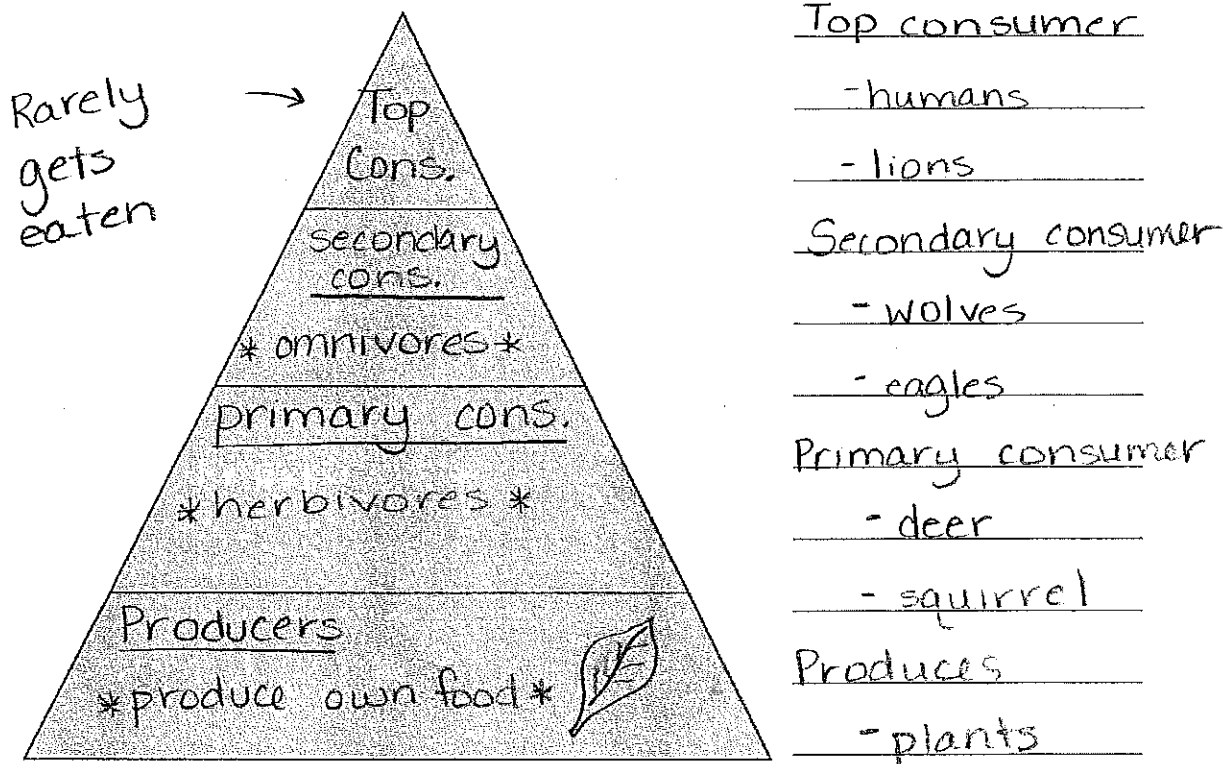 Rarely
gets
eaten
Top
Cons.
secondary
cons.
* omnivores *
primary cons.
* herbivores *
Producers
* produce own food *
Top consumer
- humans
- lions
Secondary consumer
- wolves
- eagles
Primary consumer
- deer
- squirrel
Produces
- plants